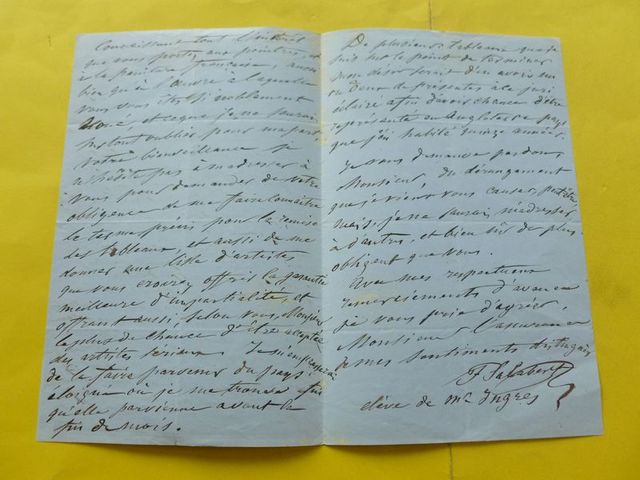 Connaissant tout l'intérêt
que vous portez aux peintres et
à la peinture française, aussi
bien qu'à l'œuvre à laquelle
vous vous êtes si noblement
voué et ce que je ne saurais
surtout oublier pour ma part
votre bienveillance je
n'hésite pas à m'adresser à
vous pour demander de votre
obligence de me faire connaître
le terme précis pour la remise
des tableaux, et aussi de me
donner une liste d'artistes
que vous croirez offrir la garantie
meilleure d'impartialités, et
offrant aussi, selon vous, Monsieur
le plus de chance d'être acceptée
des artistes sérieux. Je m'empresserai
de la faire parvenir du pays
éloigné où je me trouve afin
qu'elle parvienne avant la
fin de mois.
De plusieurs tableaux que je
suis sur le point de terminer
mon désir serait d'en avoir un
ou deux de présentés à le juri
afin d'avoir chance d'être
représenté en Angleterre pays
que j'ai habité quinze années.
Je vous demande pardon
Monsieur, du dérangement
que je viens vous causer, peut être,
mais, je ne saurais m'adresser
à d'autres, et bien sûr de plus
obligent que vous.
Avec mes respectueux
remerciements d'avance
je vous prie d'agréer,
Monsieur l'assurance
de mes sentiments distingués
élève de Mr Ingres